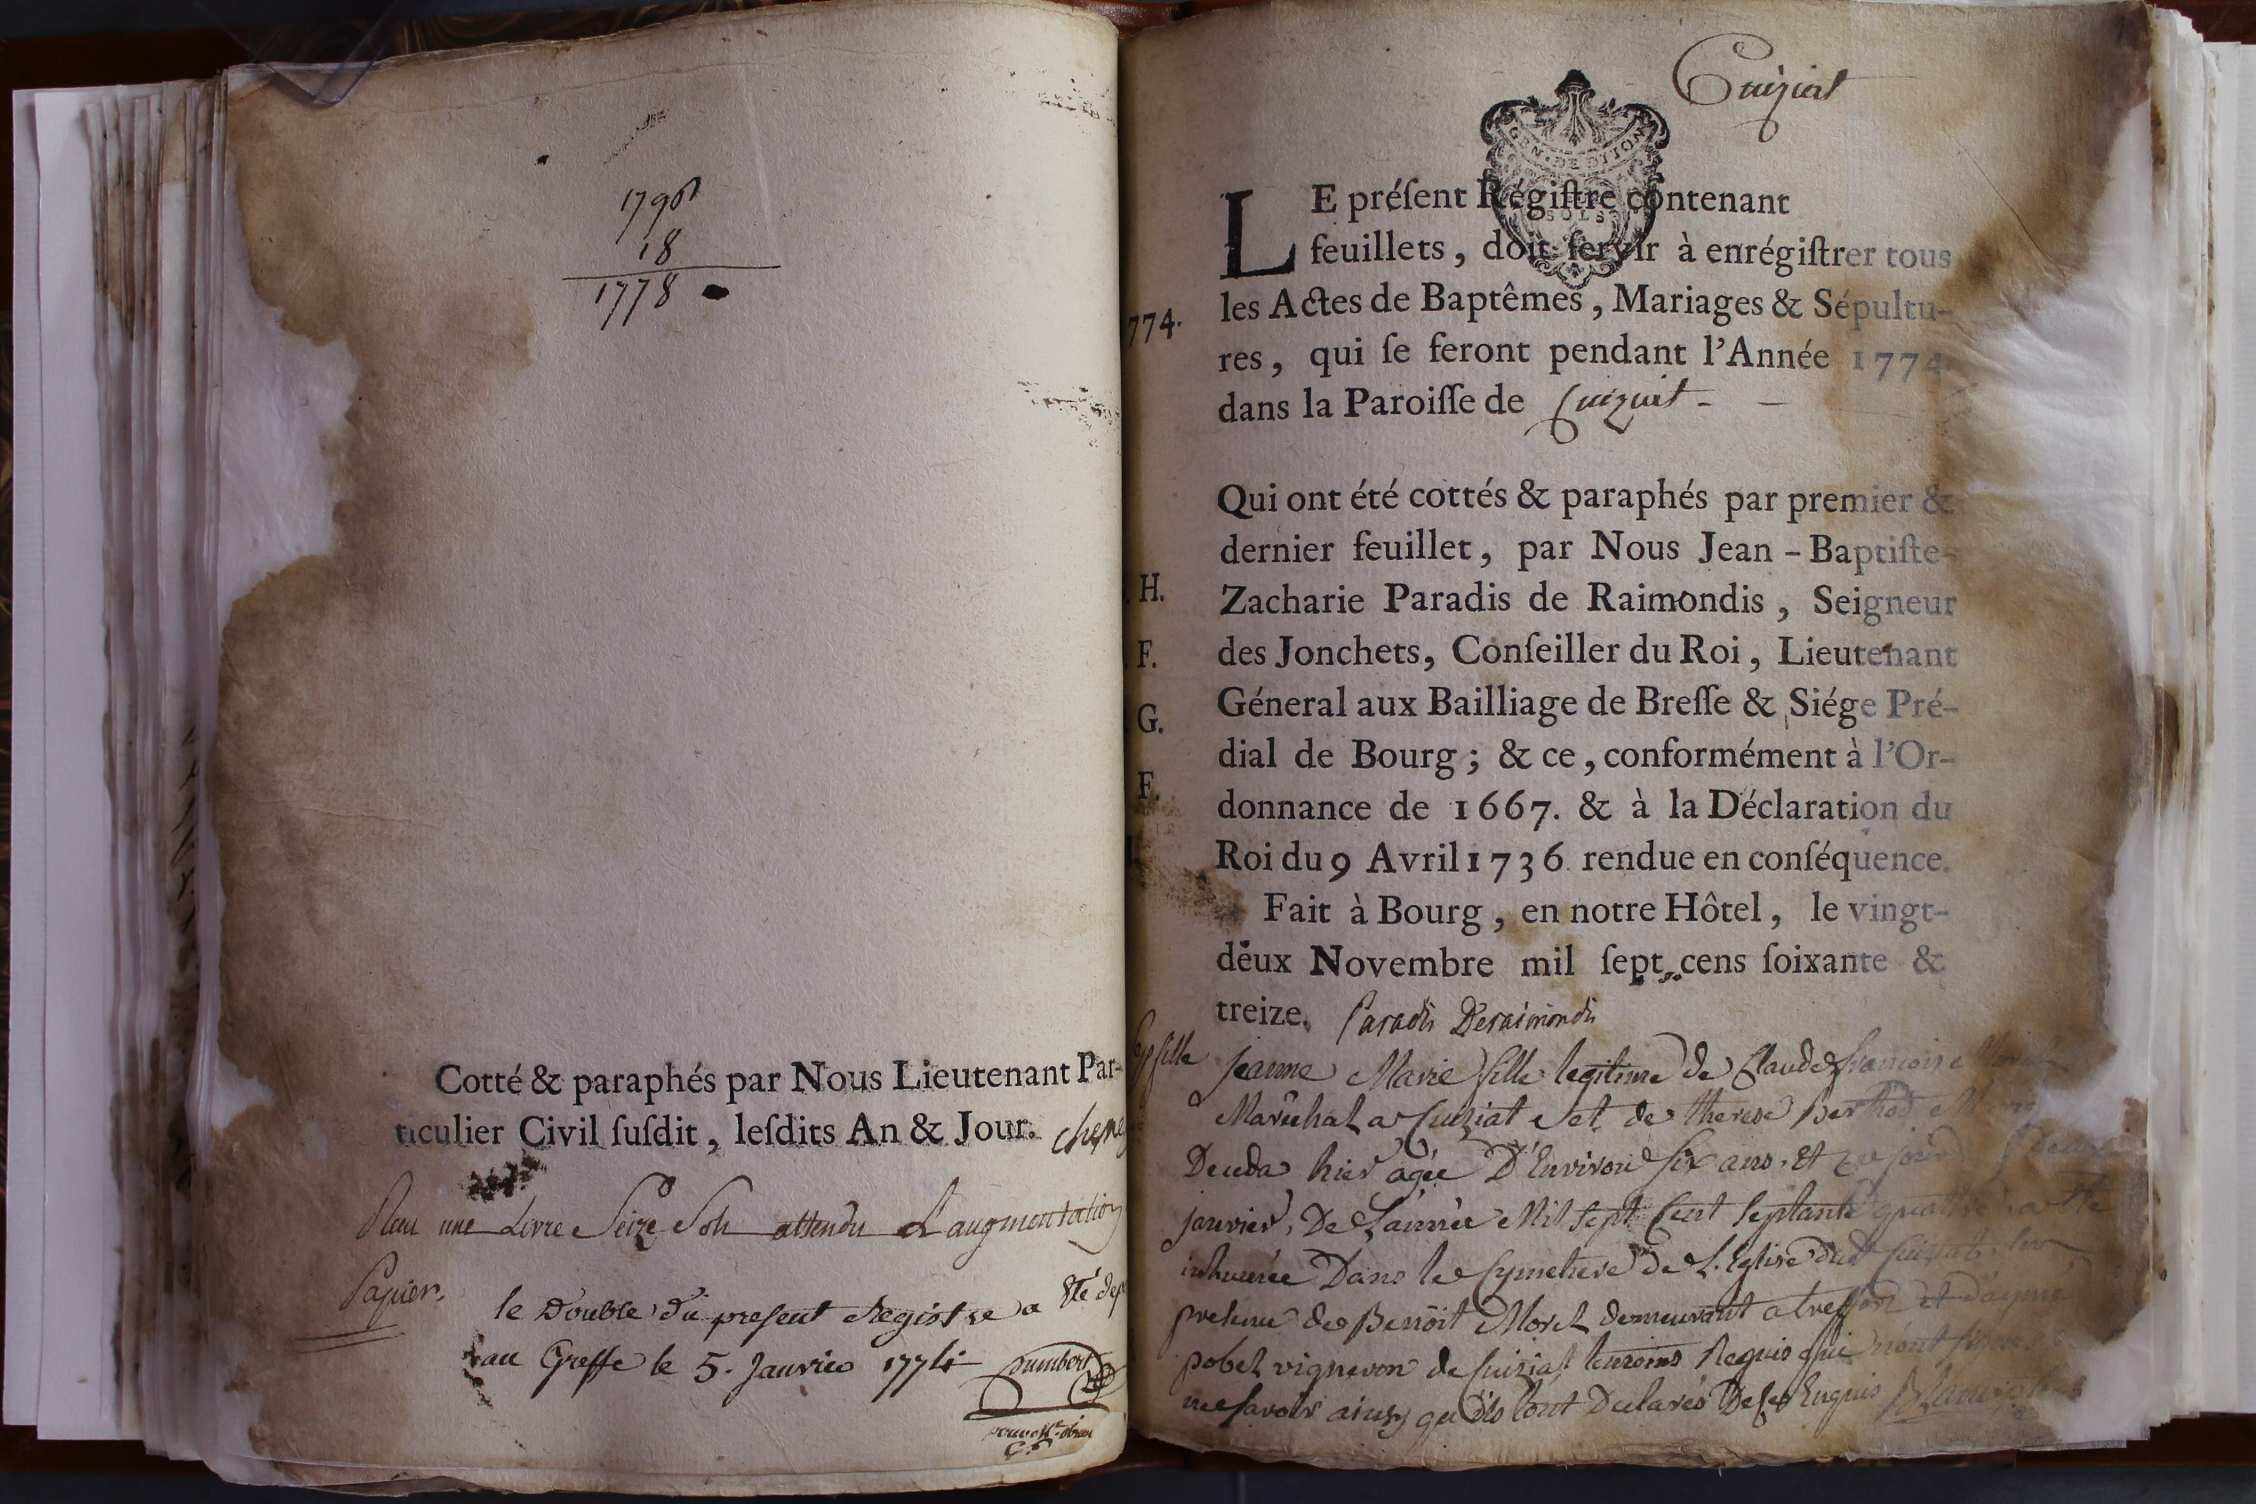 1796
18
1778
Cotté & paraphés par Nous Lieutenant Par-
ticulier Civil ſuſdit, leſdits An & Jour.
une Livre Seize Sols attendu L'augmentation
Papier.
le Double du present Registre a Eté dep
au Greffe le 5. Janvier 1774
Cuiziat
GEN. DE DIION
SOLS
774.
LE préſent Régiſtre contenant
feuillets, doit ſervir à enrégiſtrer tous
les Actes de Baptêmes, Mariages & Sépultu-
res, qui ſe feront pendant l'Année 1774.
dans la Paroiſſe de Cuiziat -
Qui ont été cottés & paraphés par premier &
dernier feuillet, par Nous Jean-Baptiſte-
H.
Zacharie Paradis de Raimondis, Seigneur
F.
des Jonchets, Conſeiller du Roi, Lieutenant
G.
Géneral aux Bailliage de Breſſe & Siége Pré-
dial de Bourg; & ce, conformément à l'Or-
F.
donnance de 1667. & à la Déclaration du
Roi du 9 Avril 1736. rendue en conſéquence.
Fait à Bourg, en notre Hôtel, le vingt-
deux Novembre mil ſept cens ſoixante &
treize. Paradis Deraimondis
jeanne Marie fille legitime de Claude francois
Maréchal a Cuiziat et de therese
Deceda hier agée D'Environ six ans, Et
janvier, De L'année Mil sept Cent septante quattre a été
inhumée Dans le Cymetiere de L'Eglise dud Cuiziat
presence de Benoit Morel demeurant a treffort et
vigneron de Cuiziat temoins Requis qui n'ont
savoir ainsy qu'ils l'ont Declarés De ce Enquis